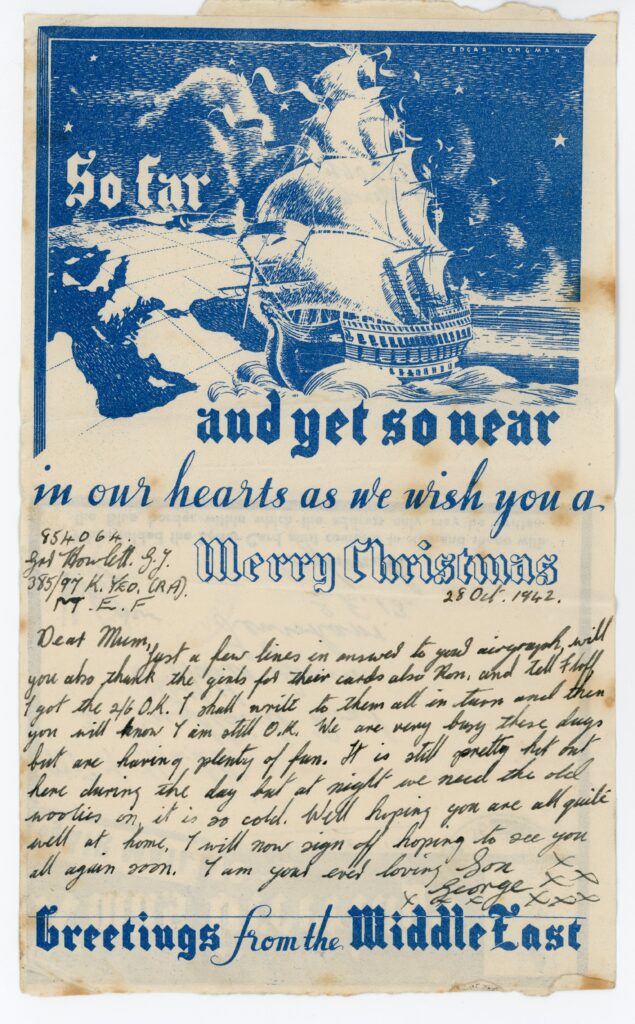 EDGAR LONGMAN
So far
and yet so near
in our hearts as we wish you a
Merry Christmas
954064.
Gnr Howlett. G.J.
385/97 K. YEO. (RA).
M.E.F
28 Oct. 1942.
Dear Mum,
Just a few lines in answer to your airgraph, will
you also thank the girls for their cards also Ron, and tell
I got the 2/6 O.K. I shall write to them all in turn and then
you will know I am still O.K. We are very busy these days
but are having plenty of fun. It is still pretty hot out
here during the day but at night we need the old
woolies on, it is so cold. Well hoping you are all quite
well at home, I will now sign off hoping to see you
all again soon. I am your ever loving Son
George X X X
X X X X X X
Greetings from the Middle East